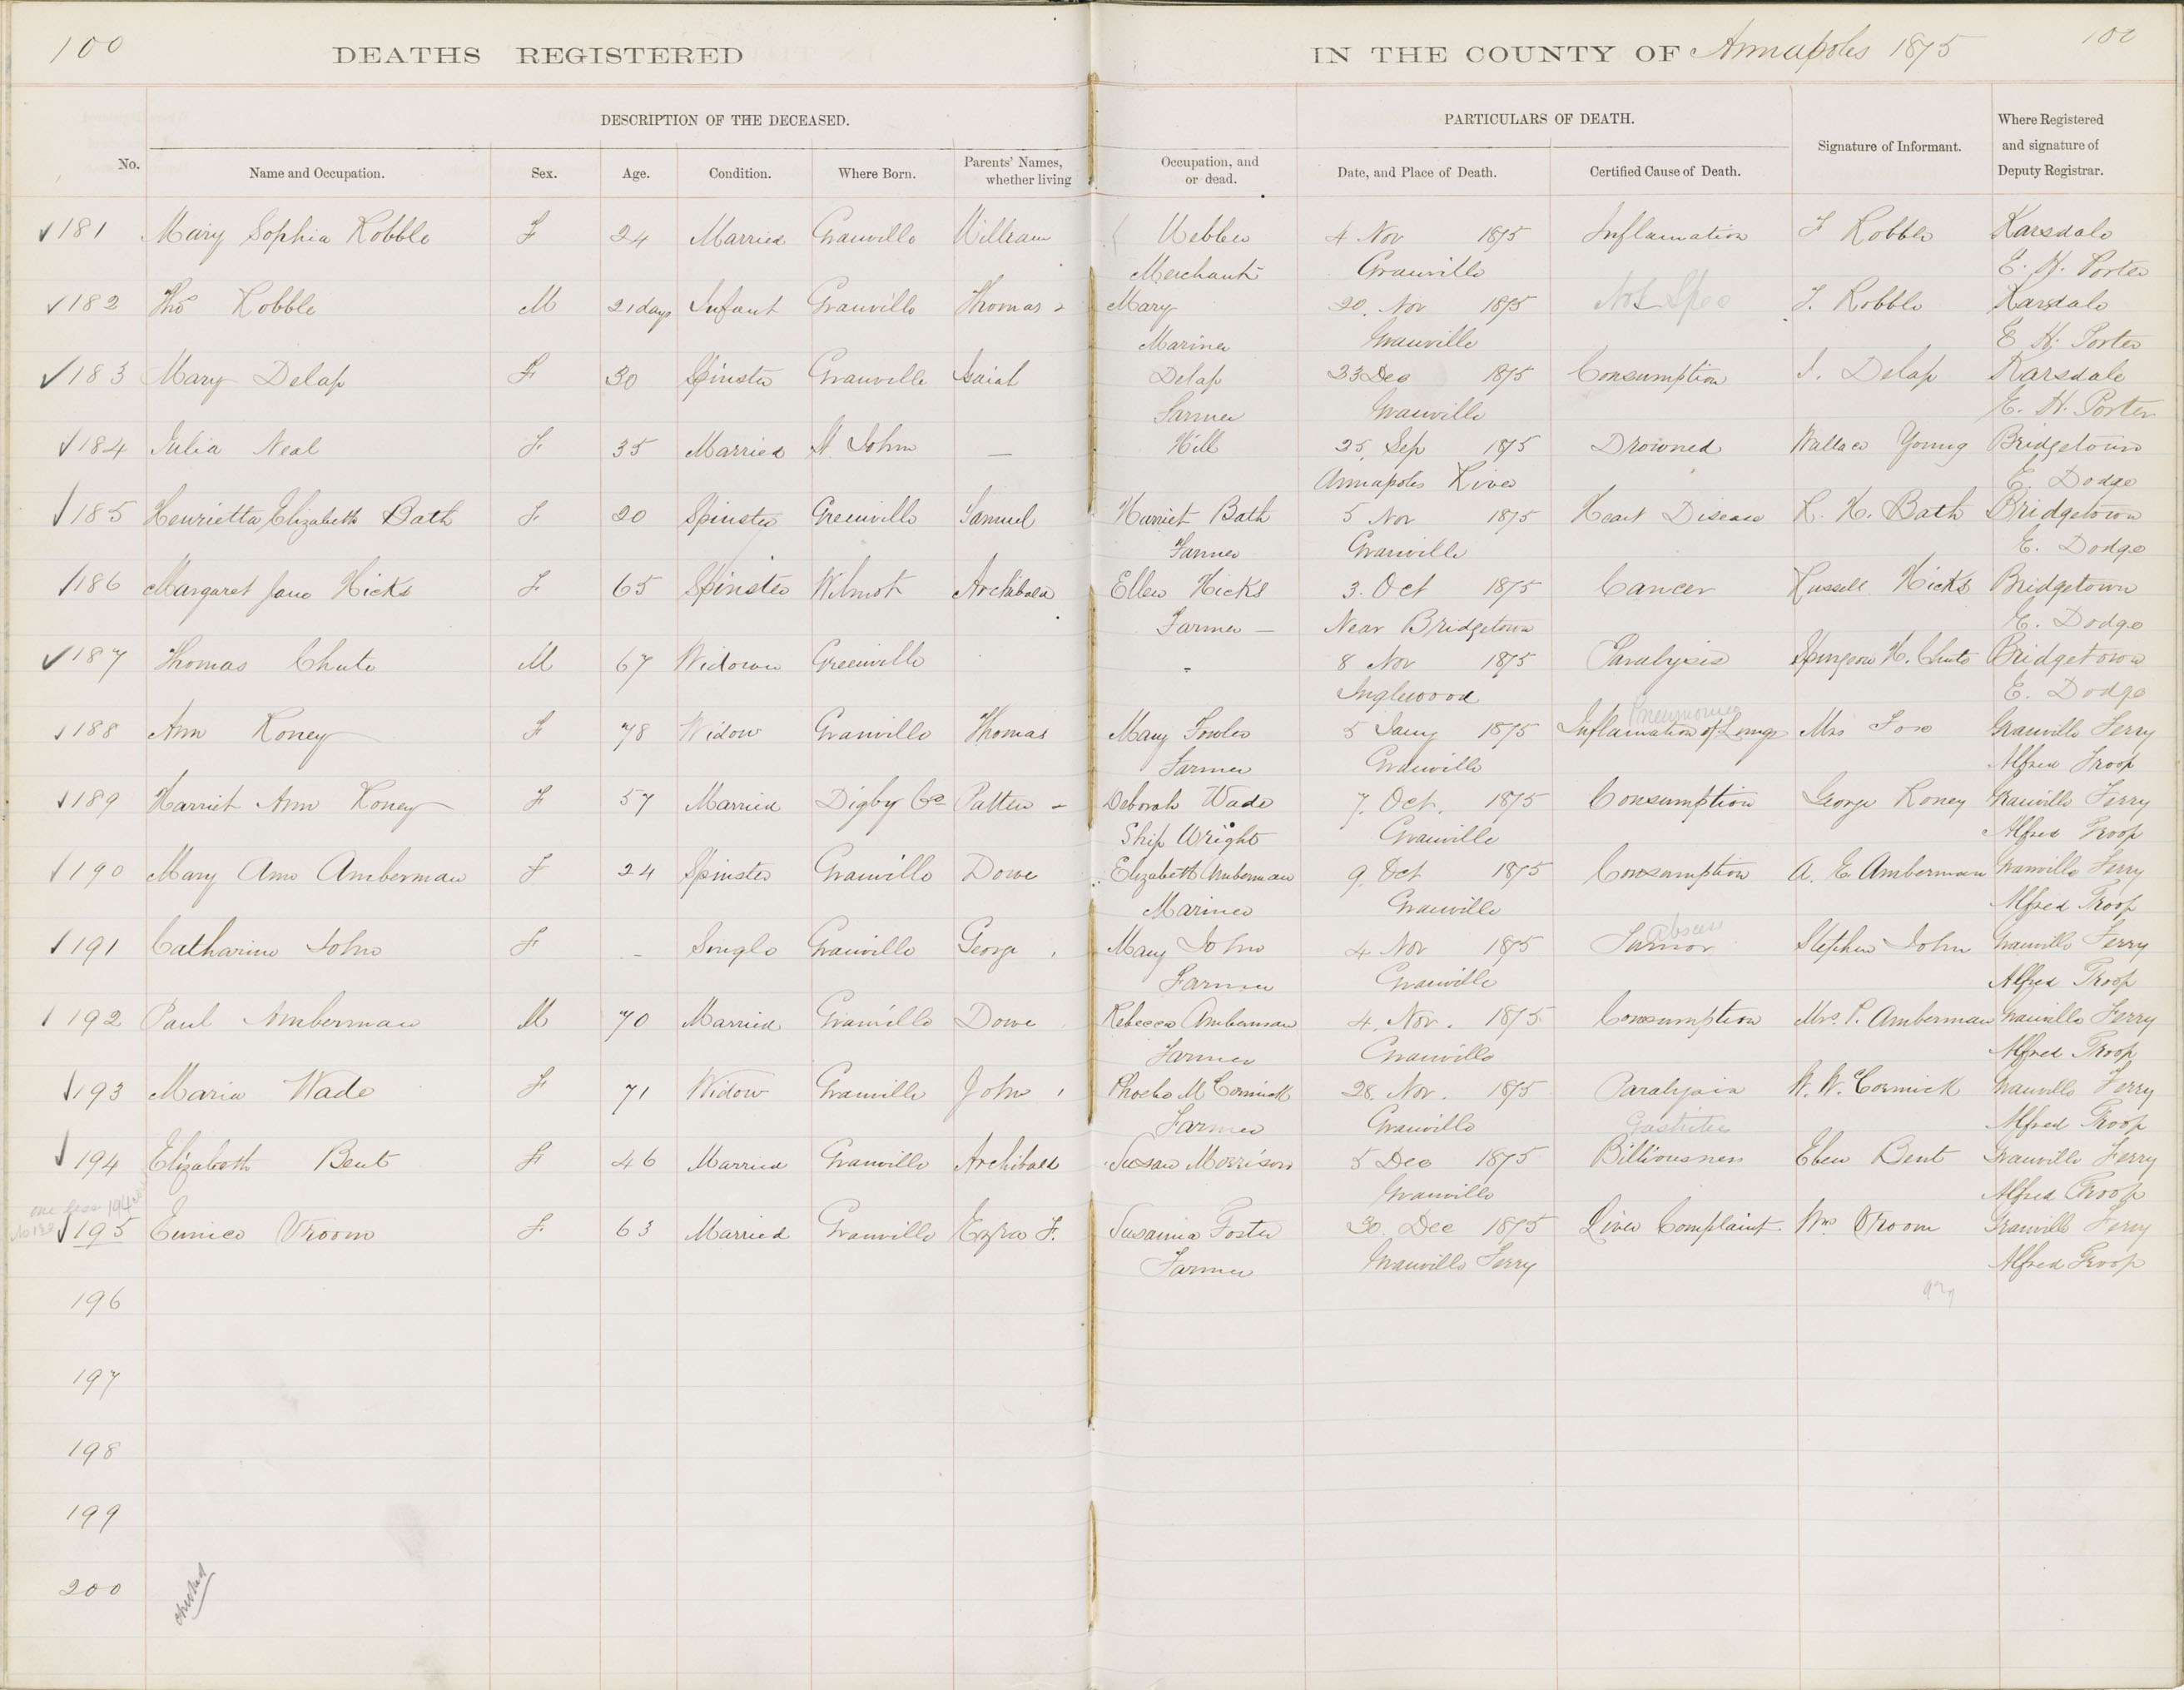 100
DEATHS REGISTERED IN THE COUNTY OF Annapolis 1875
100
DESCRIPTION OF THE DECEASED. PARTICULARS OF DEATH. Signature of Informant. Where Registered and signature of Deputy Registrar.
No. Name and Occupation. Sex. Age. Condition. Where Born. Parents' Names, whether living Occupation, and or dead. Date, and Place of Death. Certified Cause of Death.
181 Mary Sophia Robble F 24 Married Granville William Webber 4 Nov 1875 Inflamation F Robble Karsdale
Merchant Granville E. H. Porter
182 Tho Robble M 21 days Infant Granville Thomas Mary 20. Nov 1875 Not Spec J. Robble Karsdale
Mariner Granville E H. Porter
183 Mary Delap F 30 Spinster Granville Isaiah Delap 23 Dec 1875 Consumption I. Delap Karsdale
Farmer Granville E. H. Porter
184 Julia Neal F 35 Married St. John — Hill 25. Sep 1875 Drowned Wallace Young Bridgetown
Annapolis River E. Dodge
185 Henrietta Elizabeth Bath F 20 Spinster Greenville Samuel Harriet Bath 5 Nov 1875 Heart Disease R. H. Bath Bridgetown
Farmer Granville E. Dodge
186 Margaret Jane Hicks F 65 Spinster Wilmot Archibald Ellen Hicks 3. Oct 1875 Cancer Russell Hicks Bridgetown
Farmer — Near Bridgetown E. Dodge
187 Thomas Chute M 67 Widower Greenville - 8 Nov 1875 Paralysis Spurgeon H. Chute Bridgetown
Inglewood E. Dodge
Pneumonia
188 Ann Roney F 78 Widow Granville Thomas Mary Fowler 5 Jany 1875 Inflamation of Lungs Mrs Fox Granville Ferry
Farmer Granville Alfred Troop
189 Harriet Ann Roney F 57 Married Digby Co Patten - Deborah Wade 7. Oct. 1875 Consumption George Roney Granville Ferry
Ship Wright Granville Alfred Troop
190 Mary Ann Amberman F 24 Spinster Granville Dowe Elizabeth Amberman 9. Oct 1875 Consumption A. E. Amberman Granville Ferry
Mariner Granville Alfred Troop
Abscess
191 Catharine John F - Single Granville George Mary John 4 Nov 1875 Tumor Stephen John Granville Ferry
Farmer Granville Alfred Troop
192 Paul Amberman M 70 Married Granville Dowe Rebecca Amberman 4. Nov. 1875 Consumption Mrs. P. Amberman Granville Ferry
Farmer Granville Alfred Troop
193 Maria Wade F 71 Widow Granville John Phoebe McCormick 28. Nov. 1875 Paralysis W. W. Cormick Granville Ferry
Farmer Granville Gastritis Alfred Troop
194 Elizabeth Bent F 46 Married Granville Archibald Susan Morrison 5 Dec 1875 Billiousness Eben Bent Granville Ferry
Granville Alfred Troop
one less 194
195 Eunice Vroom F 63 Married Granville Ezra F. Susanna Foster 30. Dec 1875 Liver Complaint Wm Vroom Granville Ferry
Farmer Granville Ferry Alfred Troop
196
197
198
199
200
checked